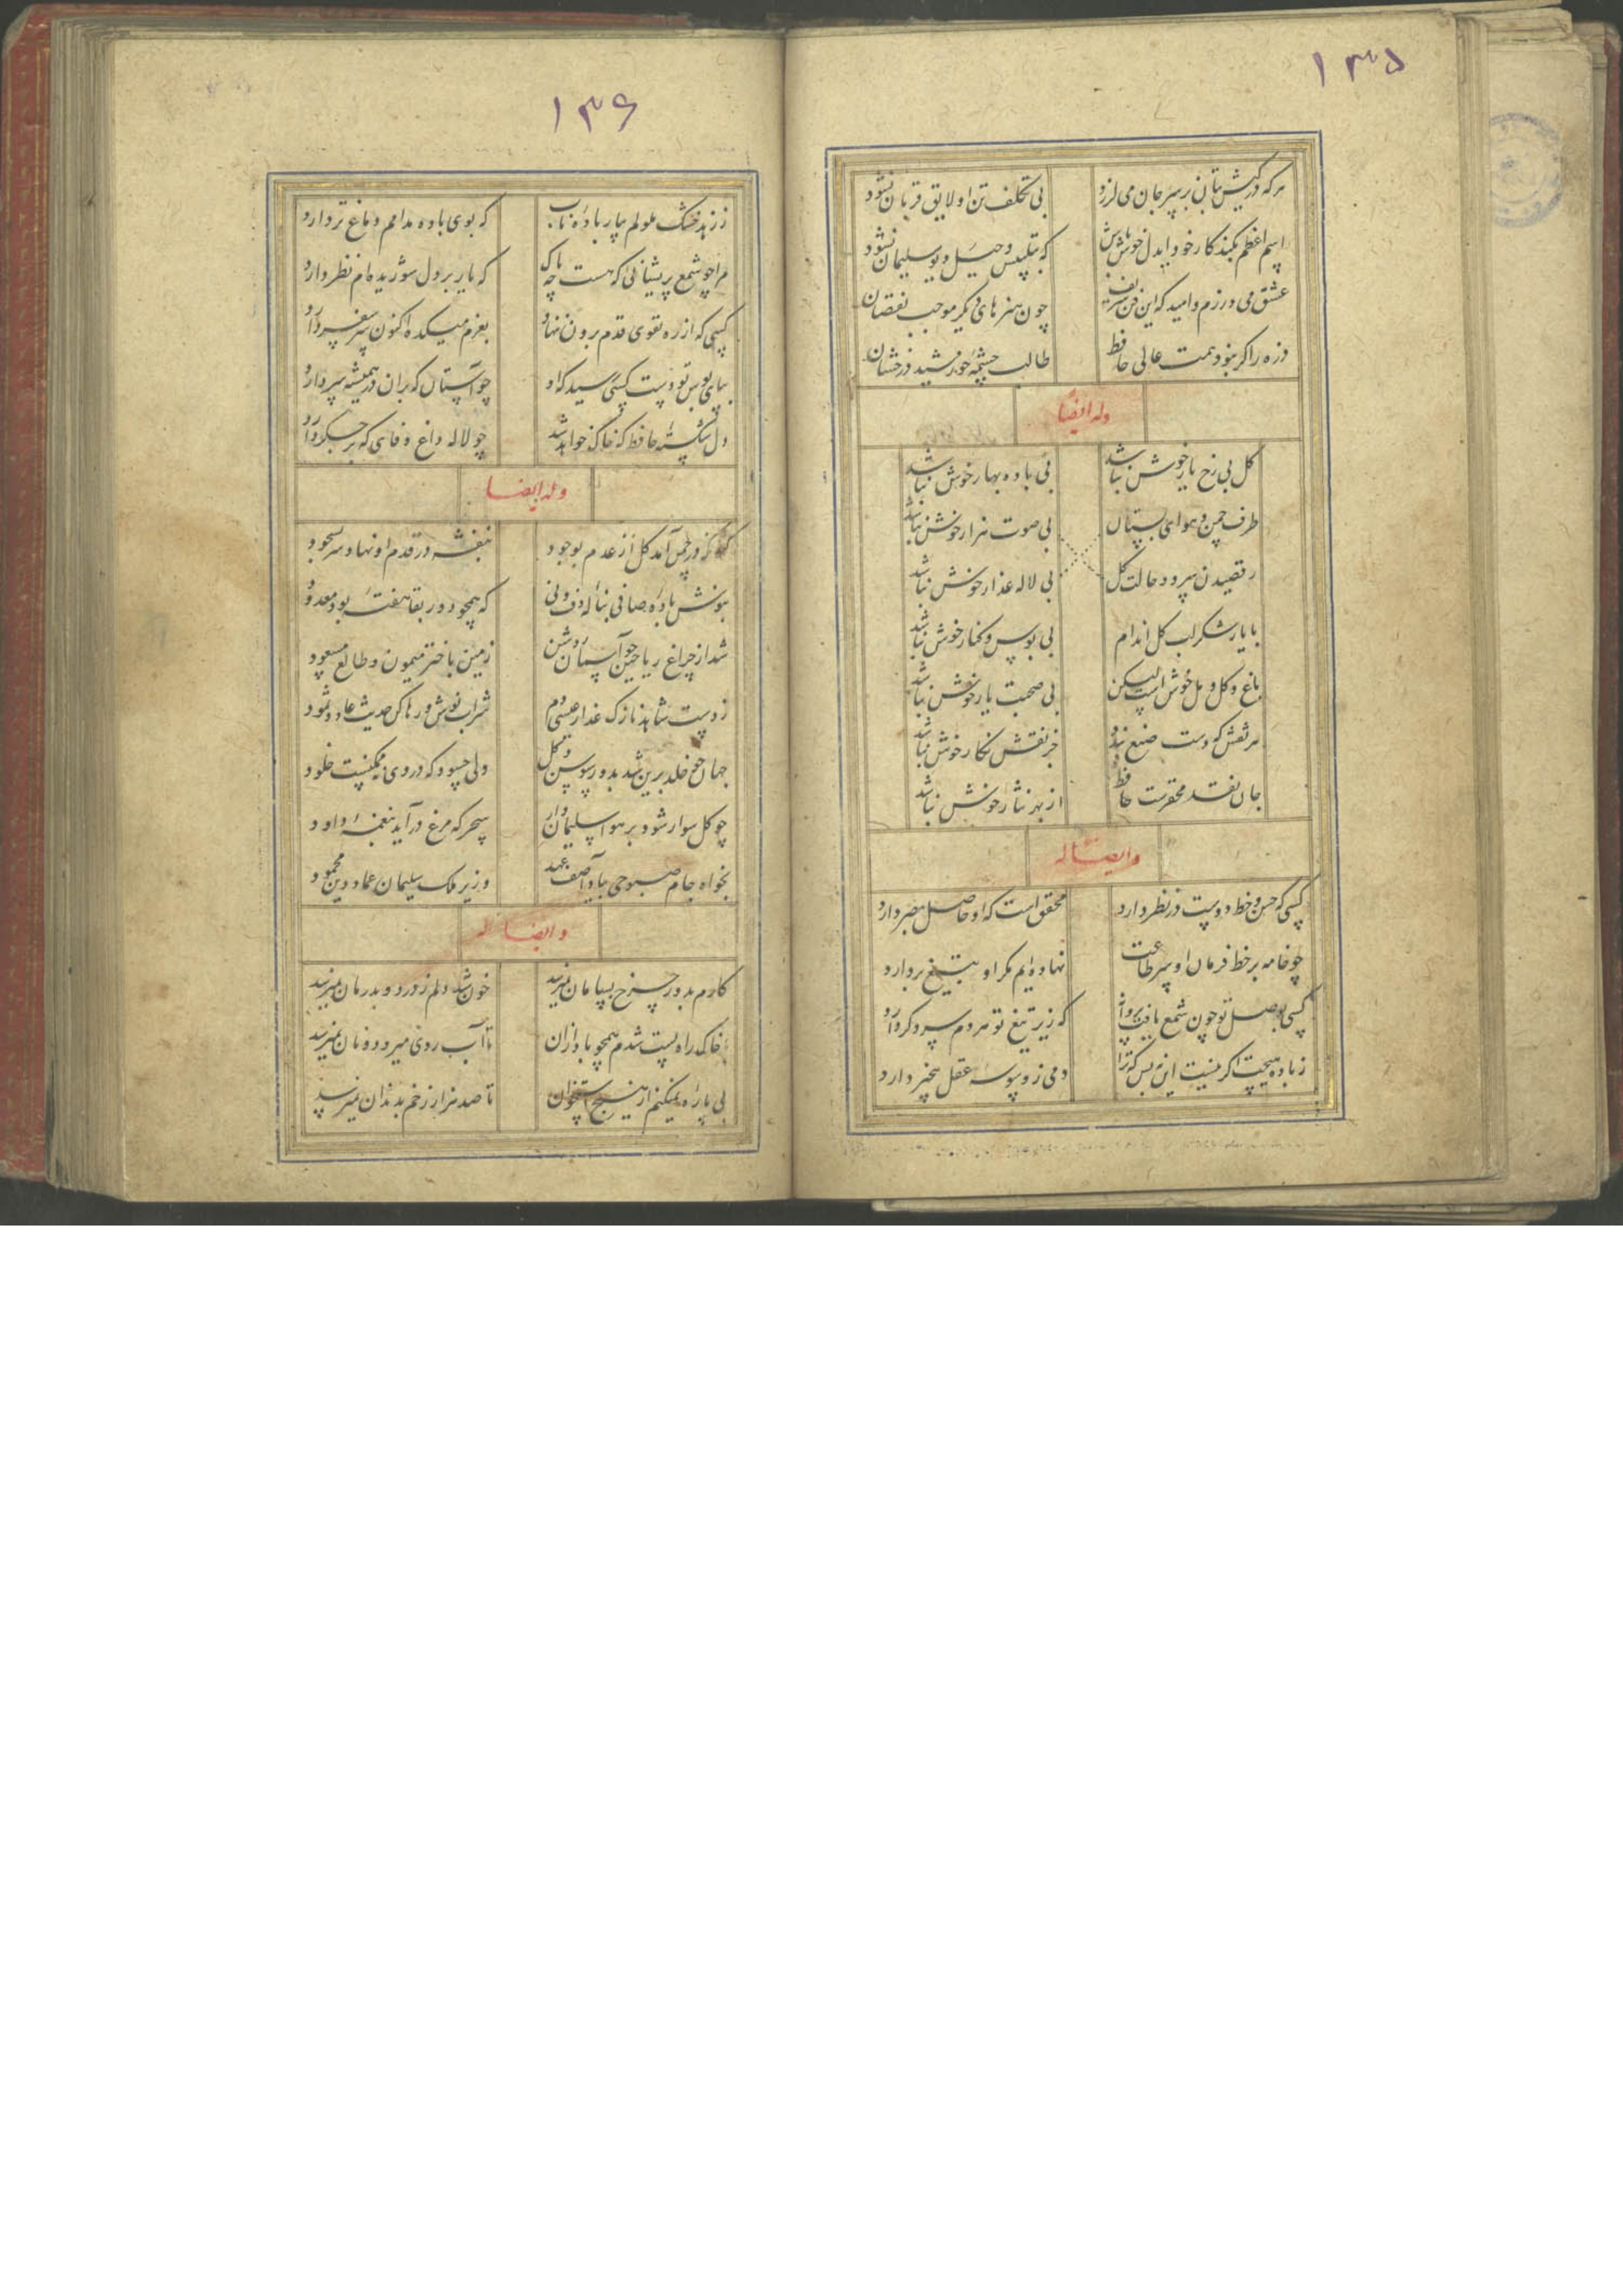 ۱۳۵
هرکه در کیش بتان بر سر جان می لرزد بی تکلف تن او لایق قربان نشود
اسم اعظم بکند کار خود ایدل خوش باش که بتلبیس و حیل دیو سلیمان نشود
عشق می ورزم و امید که این فن شریف چون هنرهای دگر موجب نقصان
ذره را گر نبود همت عالی حافظ طالب چشمه خورشید درخشان
وله ایضا
گل بی رخ یار خوش نباشد بی باده بهار خوش نباشد
طرف چمن و هوای بستان بی صوت هزار خوش نباشد
رقصیدن سرو و حالت گل بی لاله عذار خوش نباشد
با یار شکر لب گل اندام بی بوس و کنار خوش نباشد
باغ و گل و مل خوش است لیکن بی صحبت یار خوش نباشد
هر نقش که دست صنع بندد جز نقش نگار خوش نباشد
جان نقد محقرست حافظ از بهر نثار خوش نباشد
و ایضا له
کسی که حسن و خط دوست در نظر دارد محقق است که او حاصل بصر دارد
چو خامه بر خط فرمان او سر طاعت نهاده ایم مگر او بتیغ بردارد
کسی بوصل تو چون شمع یافت پروانه که زیر تیغ تو هر دم سر دگر دارد
ز باده هیچت اگر نیست این نه بس که ترا دمی ز وسوسه عقل بیخبر دارد
۱۳۶
ز زهد خشک ملولم بیار باده ناب که بوی باده مدامم دماغ تر دارد
کسی که از ره تقوی قدم برون ننهاد بعزم میکده اکنون سر سفر دارد
بپای بوس تو دست کسی رسید که او چو آستان که بران در همیشه سر دارد
دل شکسته حافظ که خاک خواهد شد چو لاله داغ وفائی که بر جگر دارد
وله ایضا
که در چمن آمد گل از عدم بوجود بنفشه در قدم او نهاد سر بسجود
بنوش باده صافی بناله دف و نی که همچو دور بقا هفته بود معدود
شد از چراغ ریاحین چو آسمان روشن زمین باختر میمون و طالع مسعود
ز دست شاهد نازک عذار عیسی دم شراب نوش و رها کن حدیث عاد و ثمود
جهان چو خلد برین شد بدور سوسن و گل ولی چسود که در وی نه ممکنست خلود
چو گل سوار شود بر هوا سلیمان وار سحر که مرغ درآید بنغمه داود
بخواه جام صبوحی بیاد آصف عهد وزیر ملک سلیمان عماد دین محمود
و ایضا له
کارم بدور چرخ بسامان نمیرسد خون شد دلم ز درد و بدرمان نمیرسد
خاک راه پست شدم همچو باد ازان تا آب روی میرود و نان نمیرسد
پی پاره نمیکنم از هیچ استخوان تا صد هزار زخم بدندان نمیرسد